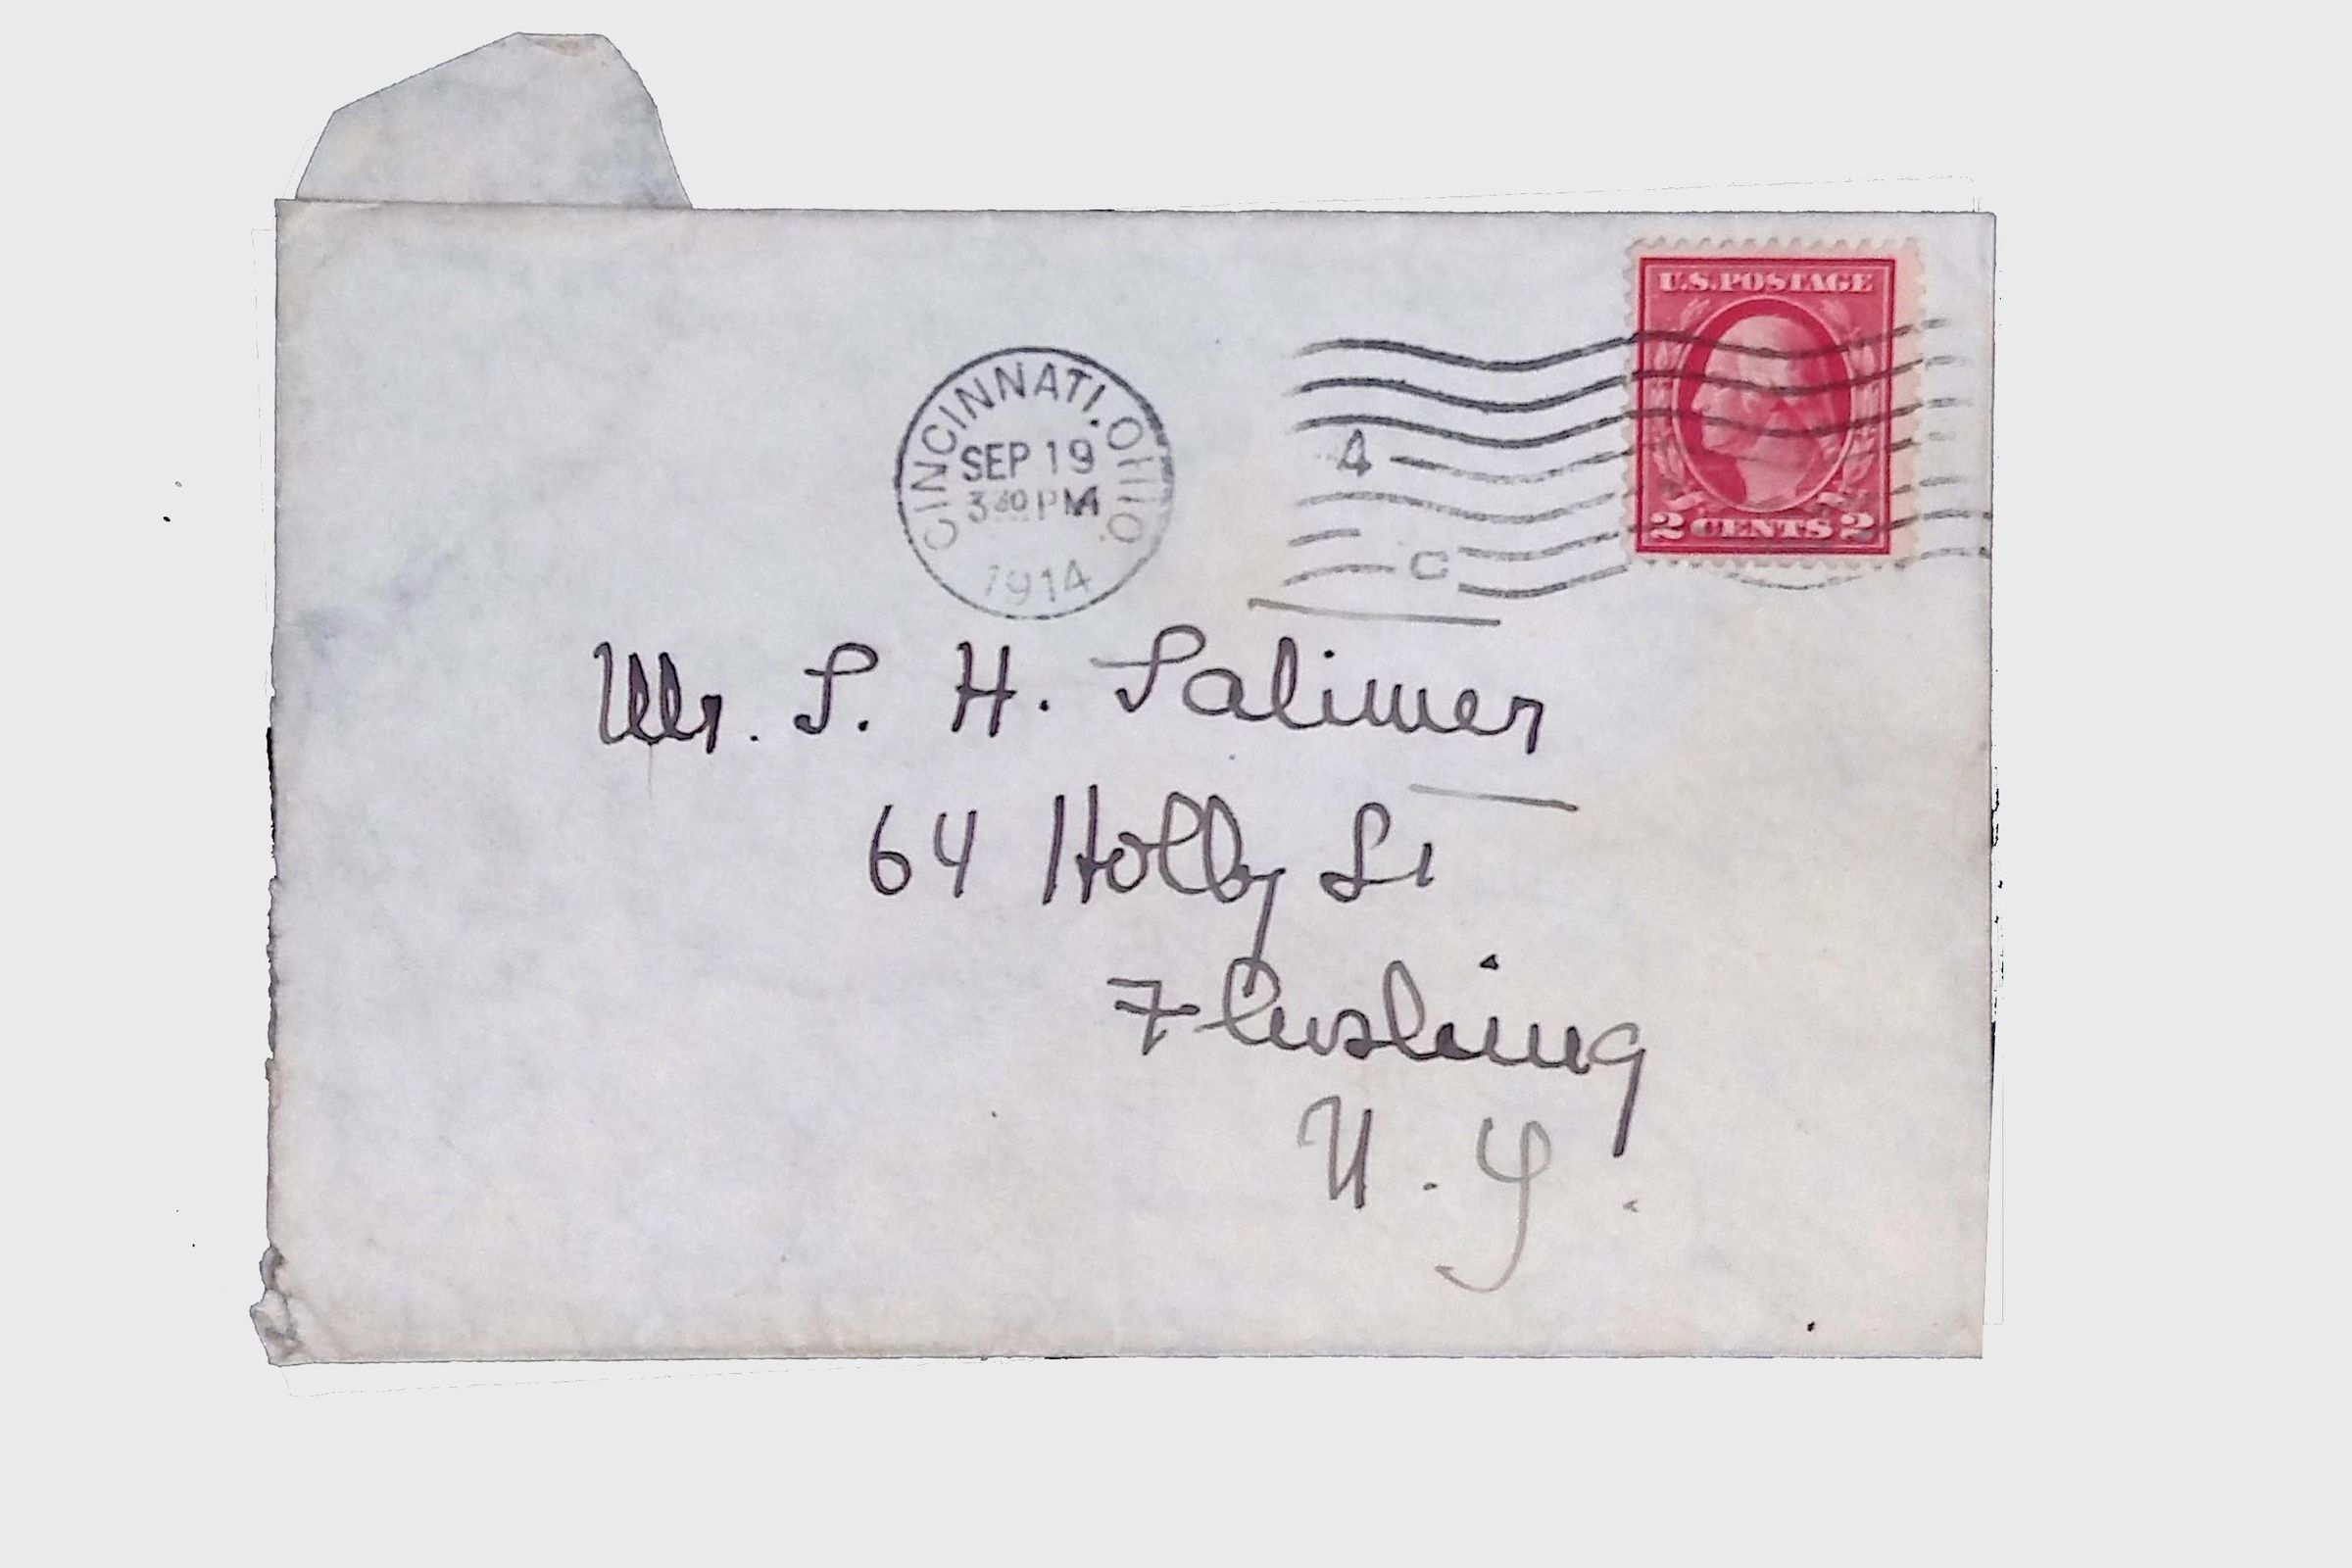 U.S.POSTAGE
2 CENTS 2
CINCINNATI. OHIO.
SEP 19
3 30 PM
1914
A
C
Mr. S. H. Salimer
64 Holly St
Flushing
N. Y.